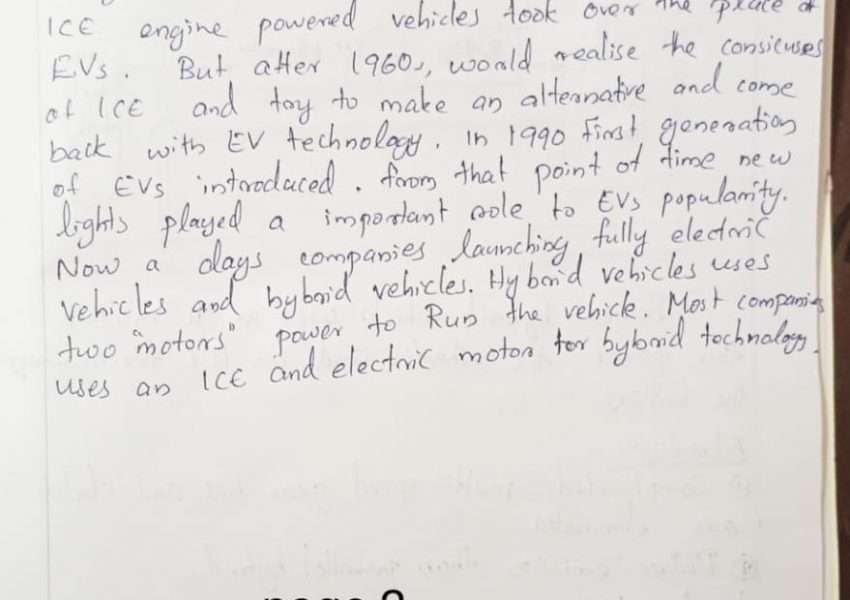 ICE engine powered vehicles took over the place of
EVs. But after 1960s, would realise the
of ICE and try to make an alternative and come
back with EV technology. in 1990 first generation
of EVs introduced. from that point of time new
lights played a important role to EVs popularity.
Now a days companies launching fully electric
vehicles and hybrid vehicles. Hybrid vehicles uses
two "motors" power to Run the vehicle. Most companies
uses an ICE and electric motor for hybrid technology.